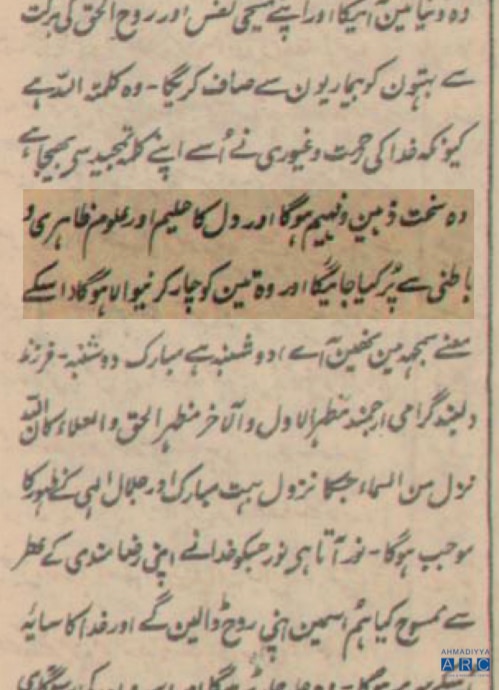 وہ دنیا مین آئیگا اور اپنے مسیحی نفس اور روح الحق کی برکت
سے بہتون کو بیماریون سے صاف کریگا - وہ کلمۃ اللہ ہے
کیونکہ خدا کی رحمت و غیوری نے اُسے اپنے کلمہ تمجید سے بھیجا ہے
وہ سخت ذہین و فہیم ہوگا اور دل کا حلیم اور علوم ظاہری و
باطنی سے پُر کیا جائیگا اور وہ تین کو چار کرنیوالا ہوگا (اسکے
معنے سمجہہ مین نہین آے) دو شنبہ ہے مبارک دوشنبہ - فرزند
دلبند گرامی ارجمند مظہر الاول والآخر مظہر الحق والعلاء کان اللہ
نزل من السماء جسکا نزول بہت مبارک اور جلال الٰہی کے ظہور کا
موجب ہوگا - نور آتا ہی نور جسکو خدا نے اپنی رضامندی کے عطر
سے ممسوح کیا ہم اسمین اپنی روح ڈالین گے اور خدا کا سایہ
AHMADIYYA
ARC